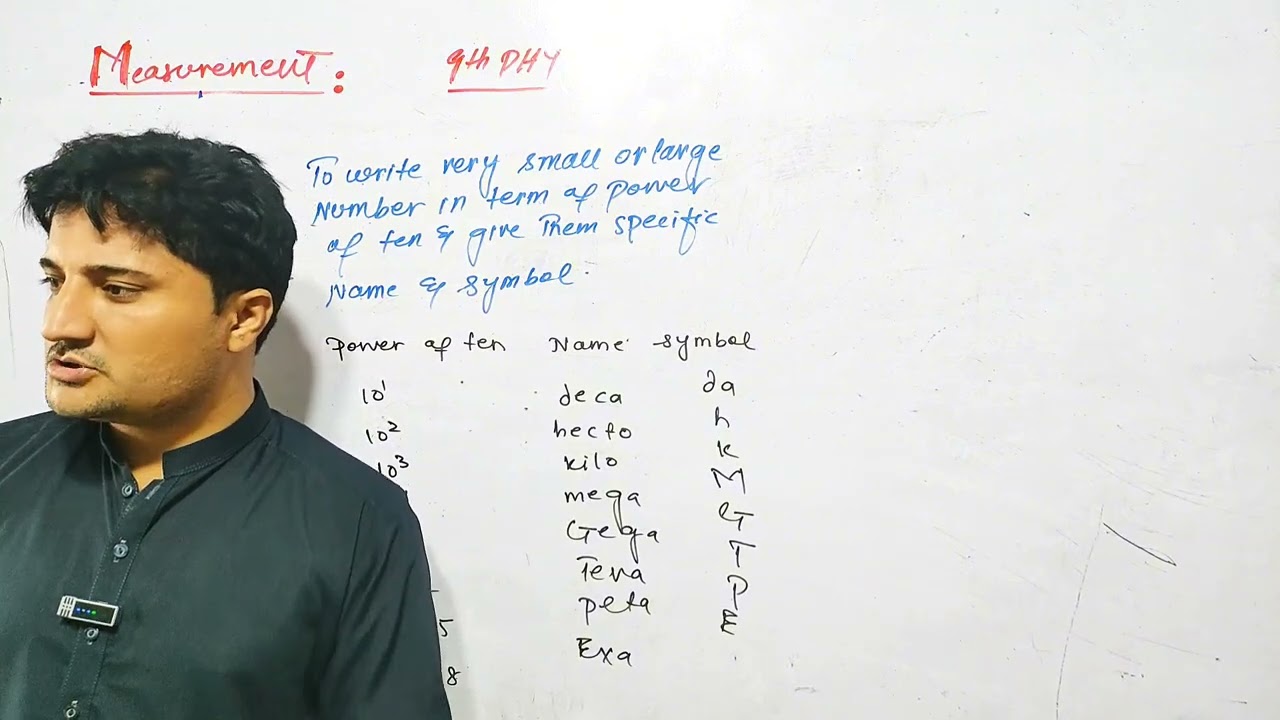 Measurement: 9th PHY
To write very small or large
Number in term of power
of ten & give Them specific
Name & symbol.
power of ten Name symbol
10¹ deca da
10² hecto h
10³ kilo k
mega M
Gega G
Tera T
5 peta P
8 Exa E